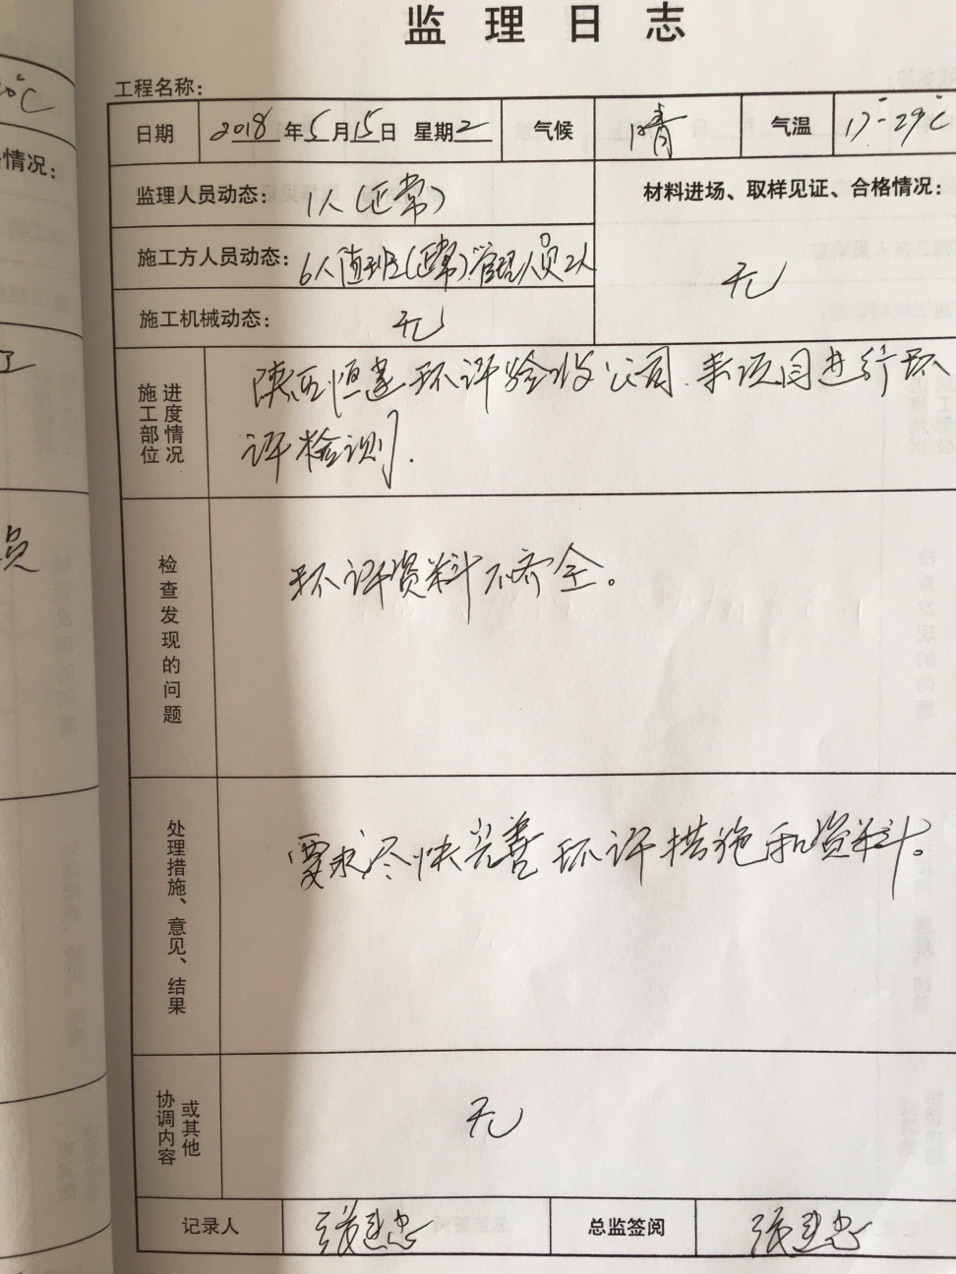 监理日志
工程名称：
日期 2018年5月15日 星期2 气候 晴 气温 17°-29℃
监理人员动态： 1人(正常) 材料进场、取样见证、合格情况：
施工方人员动态： 6人值班(正常)管理人员2人
无
施工机械动态： 无
施工部位进度情况
陕西恒建环评验收公司.来项目进行环
评检测.
检查发现的问题
环评资料不齐全。
处理措施、意见、结果
要求尽快完善环评措施和资料。
协调内容或其他
无
记录人 张建忠 总监签阅 张建忠
℃
情况：
员